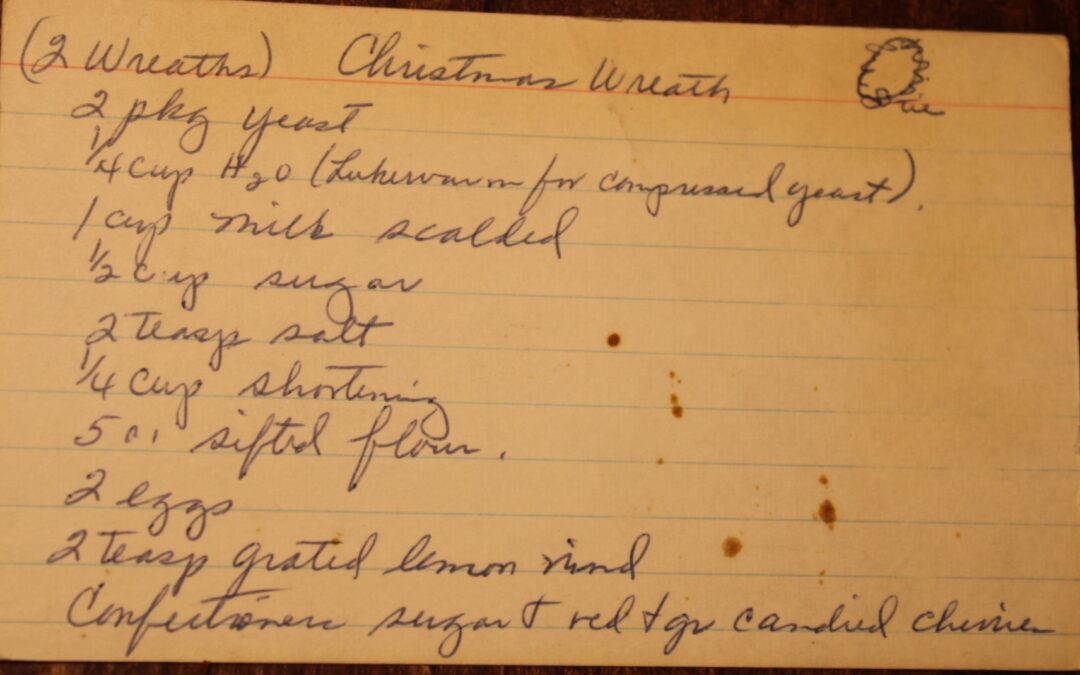 (2 Wreaths) Christmas Wreath
2 pkg yeast
1/4 cup H2O (Lukewarm for compressed yeast).
1 cup milk scalded
1/2 cup sugar
2 teasp salt
1/4 cup shortening
5 c. sifted flour.
2 eggs
2 teasp grated lemon rind
Confectioners sugar & red + gr candied cherries